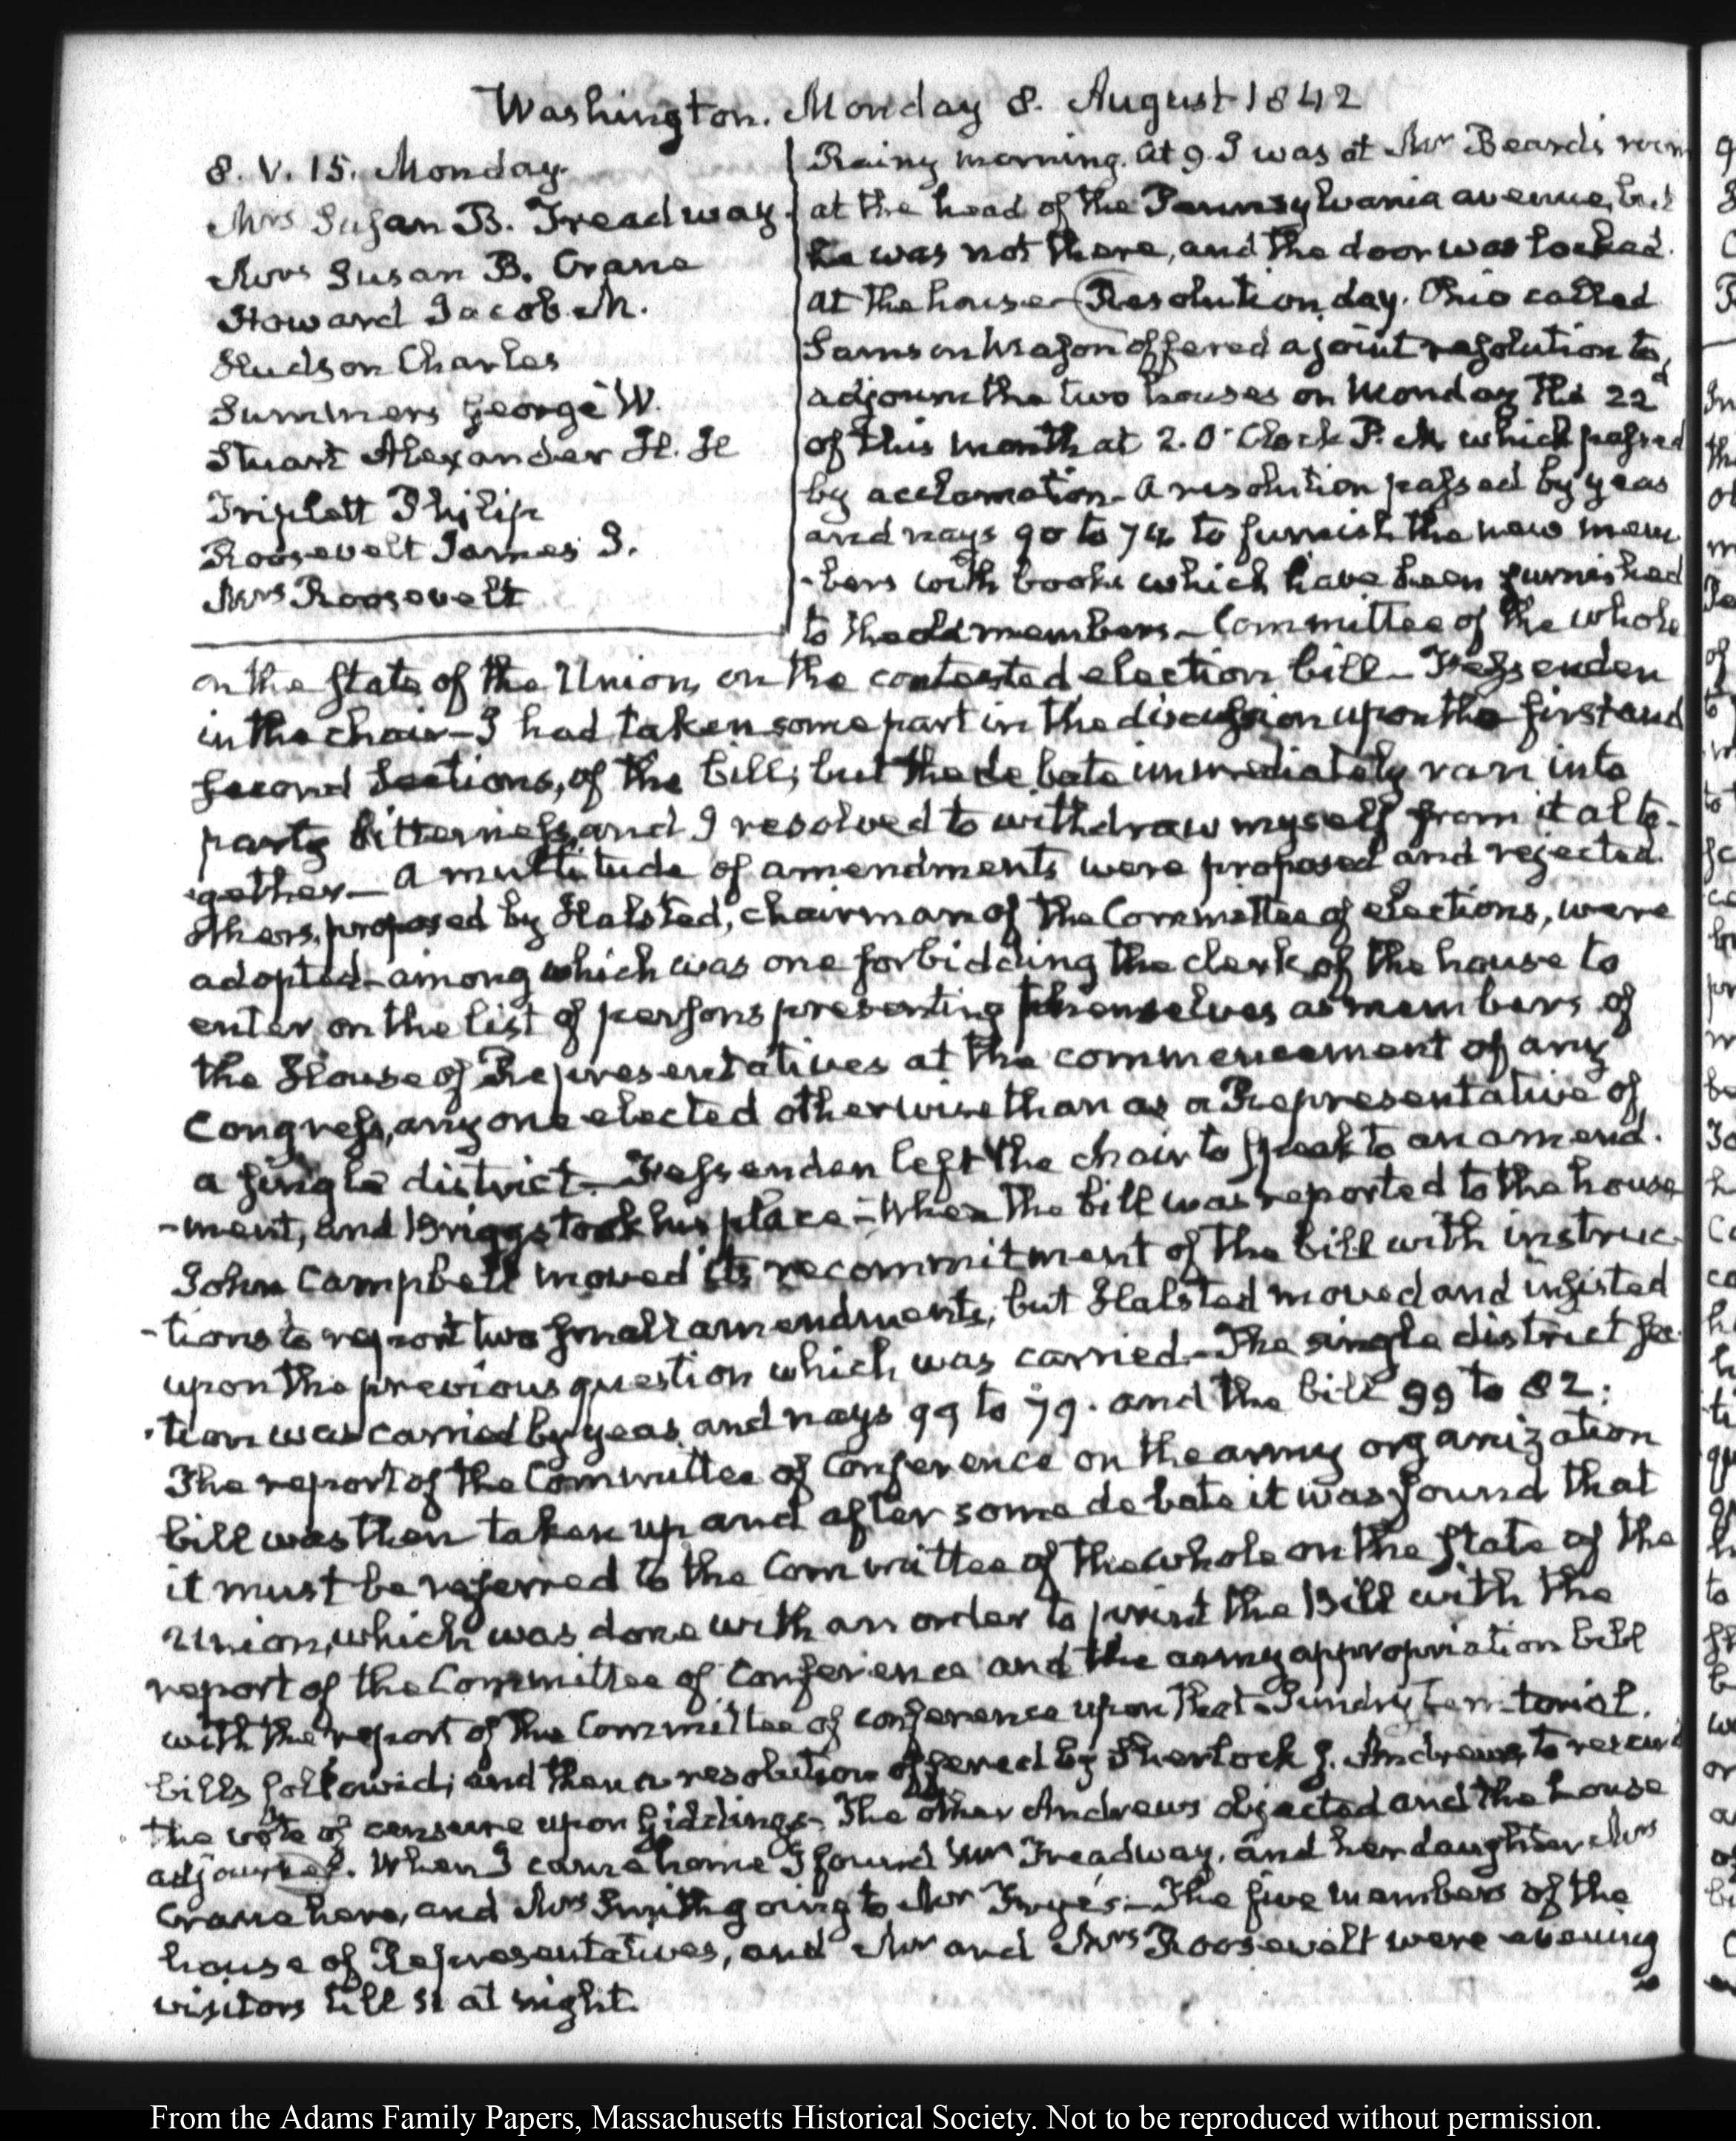 Washington. Monday 8. August 1842
8. V. 15. Monday.
Mrs Susan B. Treadway.
Mrs Susan B. Crane
Howard Jacob M.
Hudson Charles
Summers George W.
Stuart Alexander H. H
Triplett Philip
Roosevelt James I.
Mrs Roosevelt
Rainy morning. At 9. I was at Mr Beard's room
at the head of the Pennsylvania avenue, but
he was not there, and the door was locked.
At the house— Resolution day. Ohio called
Samson Mason offered a joint resolution to
adjourn the two houses on Monday the 22d
of this month at 2. O'Clock P. M. which passed
by acclamation— A resolution passed by yeas
and nays 90 to 74 to furnish the new mem
-bers with books which have been furnished
to the old members— Committee of the whole
on the State of the Union, on the contested election bill— Fessenden
in the chair— I had taken some part in the discussion upon the first and
second Sections, of the bill; but the debate immediately ran into
party bitterness, and I resolved to withdraw myself from it alto-
-gether— A multitude of amendments were proposed and rejected.
others, proposed by Halsted, chairman of the Committee of elections, were
adopted— among which was one forbidding the clerk of the house to
enter on the list of persons presenting themselves as members of
the House of Representatives at the commencement of any
Congress, any one elected otherwise than as a Representative of
a single district— Fessenden left the chair to speak to an amend.
-ment, and Briggs took his place— When the bill was reported to the house
John Campbell moved its recommitment of the bill with instruc-
-tions to report two small amendments; but Halsted moved and insisted
upon the previous question which was carried— The single district sec
-tion was carried by yeas and nays 99 to 79. and the bill 99 to 82:
The report of the Committee of Conference on the army organization
bill was then taken up and after some debate it was found that
it must be referred to the Committee of the whole on the State of the
Union, which was done with an order to print the Bill with the
report of the Committee of Conference and the army appropriation bill
with the report of the Committee of conference upon that— Sundry territorial.
bills followed; and then a resolution offered by Sherlock J. Andrews, to rescind
the vote of censure upon Giddings— The other Andrews objected and the house
adjourned. When I came home I found Mrs Treadway, and her daughter Mrs
Crane here, and Mrs Smith going to Mr Frye's— The five members of the
house of Representatives, and Mr and Mrs Roosevelt were evening
visitors till at night.